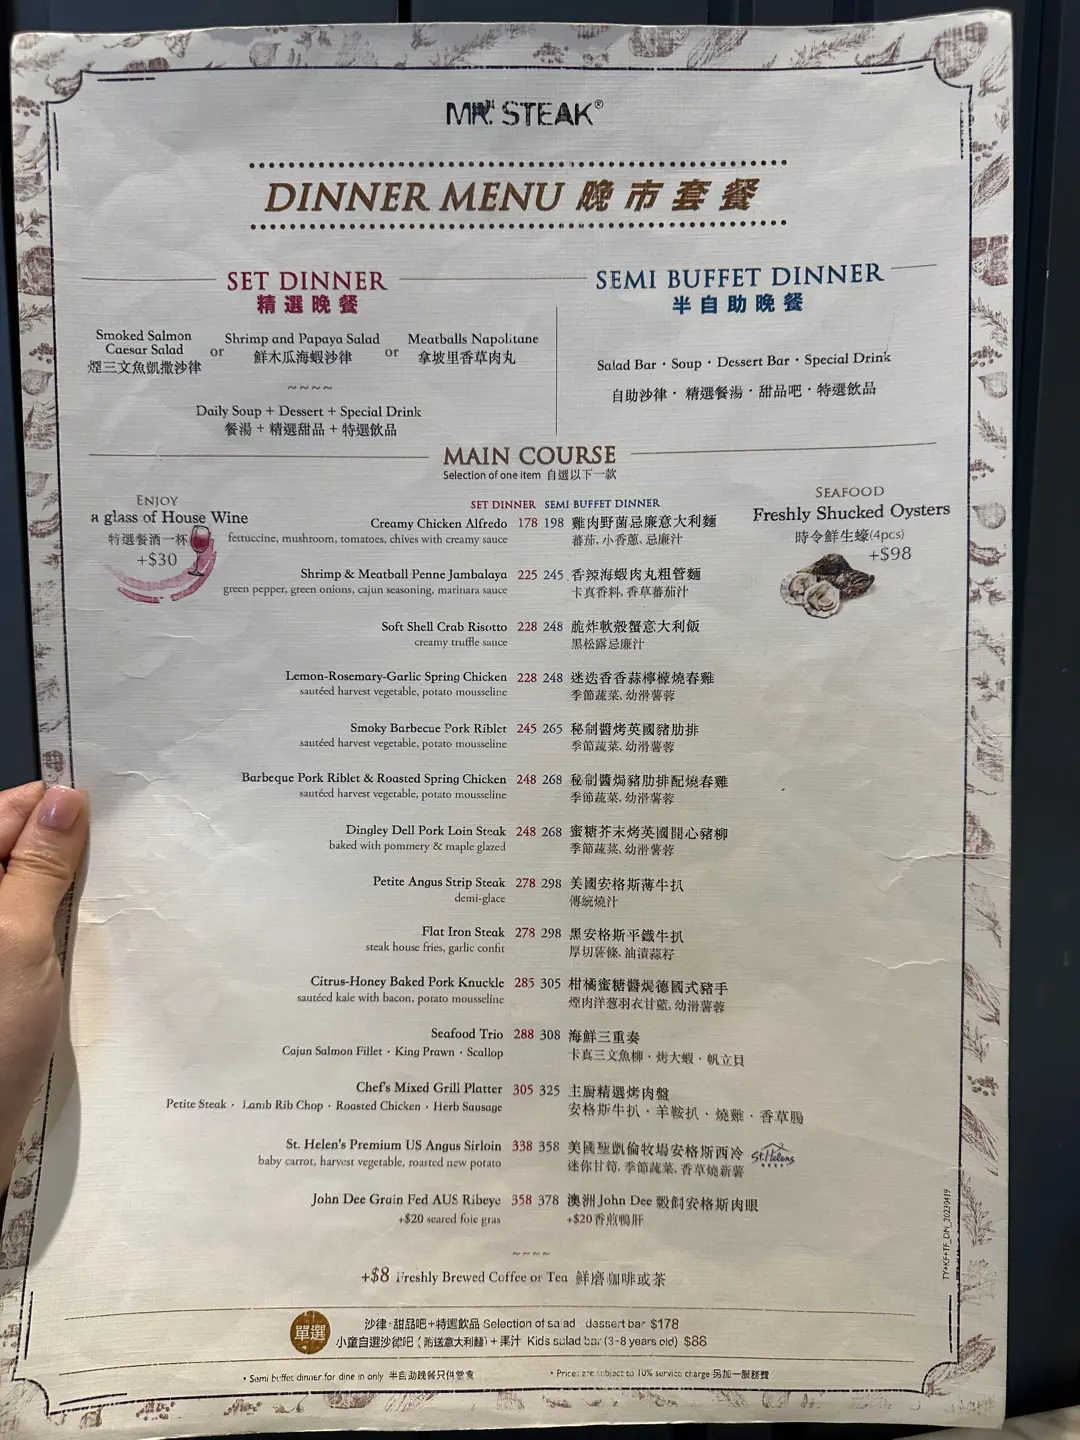 MR. STEAK®
DINNER MENU 晚市套餐
SET DINNER
精選晚餐
Smoked Salmon
Caesar Salad
煙三文魚凱撒沙律
or
Shrimp and Papaya Salad
鮮木瓜海蝦沙律
or
Meatballs Napolitane
拿坡里香草肉丸
~~~~
Daily Soup + Dessert + Special Drink
餐湯 + 精選甜品 + 特選飲品
SEMI BUFFET DINNER
半自助晚餐
Salad Bar · Soup · Dessert Bar · Special Drink
自助沙律 · 精選餐湯 · 甜品吧 · 特選飲品
MAIN COURSE
Selection of one item 自選以下一款
ENJOY
a glass of House Wine
特選餐酒一杯
+$30
SEAFOOD
Freshly Shucked Oysters
時令鮮生蠔(4pcs)
+$98
SET DINNER SEMI BUFFET DINNER
Creamy Chicken Alfredo 178 198 雞肉野菌忌廉意大利麵
fettuccine, mushroom, tomatoes, chives with creamy sauce 蕃茄, 小香蔥, 忌廉汁
Shrimp & Meatball Penne Jambalaya 225 245 香辣海蝦肉丸粗管麵
green pepper, green onions, cajun seasoning, marinara sauce 卡真香料, 香草蕃茄汁
Soft Shell Crab Risotto 228 248 脆炸軟殼蟹意大利飯
creamy truffle sauce 黑松露忌廉汁
Lemon-Rosemary-Garlic Spring Chicken 228 248 迷迭香香蒜檸檬燒春雞
sautéed harvest vegetable, potato mousseline 季節蔬菜, 幼滑薯蓉
Smoky Barbecue Pork Riblet 245 265 秘制醬烤英國豬肋排
sautéed harvest vegetable, potato mousseline 季節蔬菜, 幼滑薯蓉
Barbeque Pork Riblet & Roasted Spring Chicken 248 268 秘制醬焗豬肋排配燒春雞
sautéed harvest vegetable, potato mousseline 季節蔬菜, 幼滑薯蓉
Dingley Dell Pork Loin Steak 248 268 蜜糖芥末烤英國開心豬柳
baked with pommery & maple glazed 季節蔬菜, 幼滑薯蓉
Petite Angus Strip Steak 278 298 美國安格斯薄牛扒
demi-glace 傳統燒汁
Flat Iron Steak 278 298 黑安格斯平鐵牛扒
steak house fries, garlic confit 厚切薯條, 油漬蒜籽
Citrus-Honey Baked Pork Knuckle 285 305 柑橘蜜糖醬焗德國式豬手
sautéed kale with bacon, potato mousseline 煙肉洋葱羽衣甘藍, 幼滑薯蓉
Seafood Trio 288 308 海鮮三重奏
Cajun Salmon Fillet · King Prawn · Scallop 卡真三文魚柳 · 烤大蝦 · 帆立貝
Chef's Mixed Grill Platter 305 325 主厨精選烤肉盤
Petite Steak · Lamb Rib Chop · Roasted Chicken · Herb Sausage 安格斯牛扒 · 羊鞍扒 · 燒雞 · 香草腸
St. Helen's Premium US Angus Sirloin 338 358 美國聖凱倫牧場安格斯西冷 St.Helens
baby carrot, harvest vegetable, roasted new potato 迷你甘筍, 季節蔬菜, 香草燒新薯
John Dee Grain Fed AUS Ribeye 358 378 澳洲John Dee 穀飼安格斯肉眼
+$20 seared foie gras +$20香煎鴨肝
~~~~
+$8 Freshly Brewed Coffee or Tea 鮮磨咖啡或茶
單選
沙律·甜品吧+特選飲品 Selection of salad dessert bar $178
小童自選沙律吧 (附送意大利麵) + 果汁 Kids salad bar (3-8 years old) $88
• Semi buffet dinner for dine in only 半自助晚餐只供堂食
• Prices are subject to 10% service charge 另加一服務費
TY+KF+TF_DM_20230419